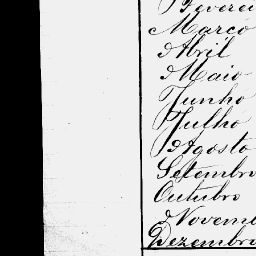 Feverei
Março
Abril
Maio
Junho
Julho
Agosto
Setembro
Outubro
Novem
Dezembro